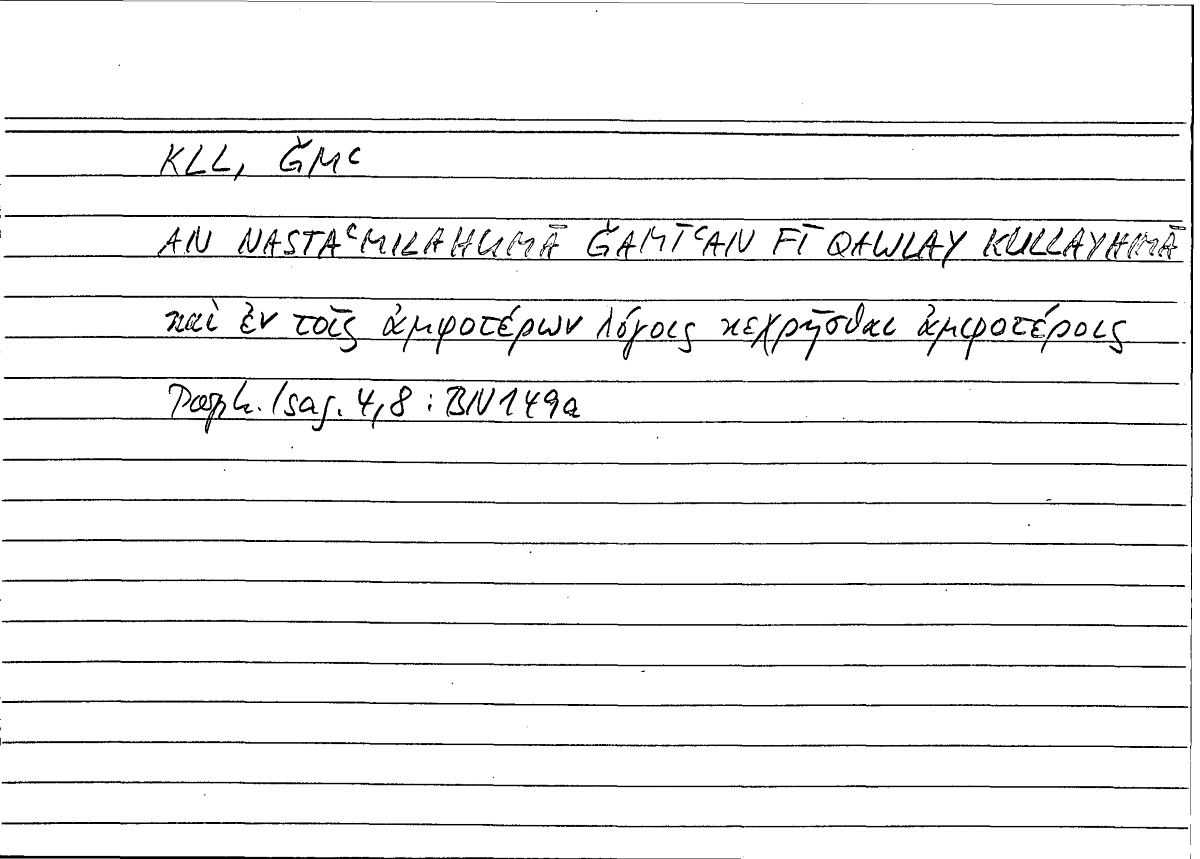 KLL, ǦMʿ
AN NASTAʿMILAHUMĀ ǦAMĪʿAN FĪ QAWLAY KULLAYHIMĀ
καὶ ἐν τοῖς ἀμφοτέρων λόγοις κεχρῆσθαι ἀμφοτέροις
Porph. Isag. 4,8 : BN149a